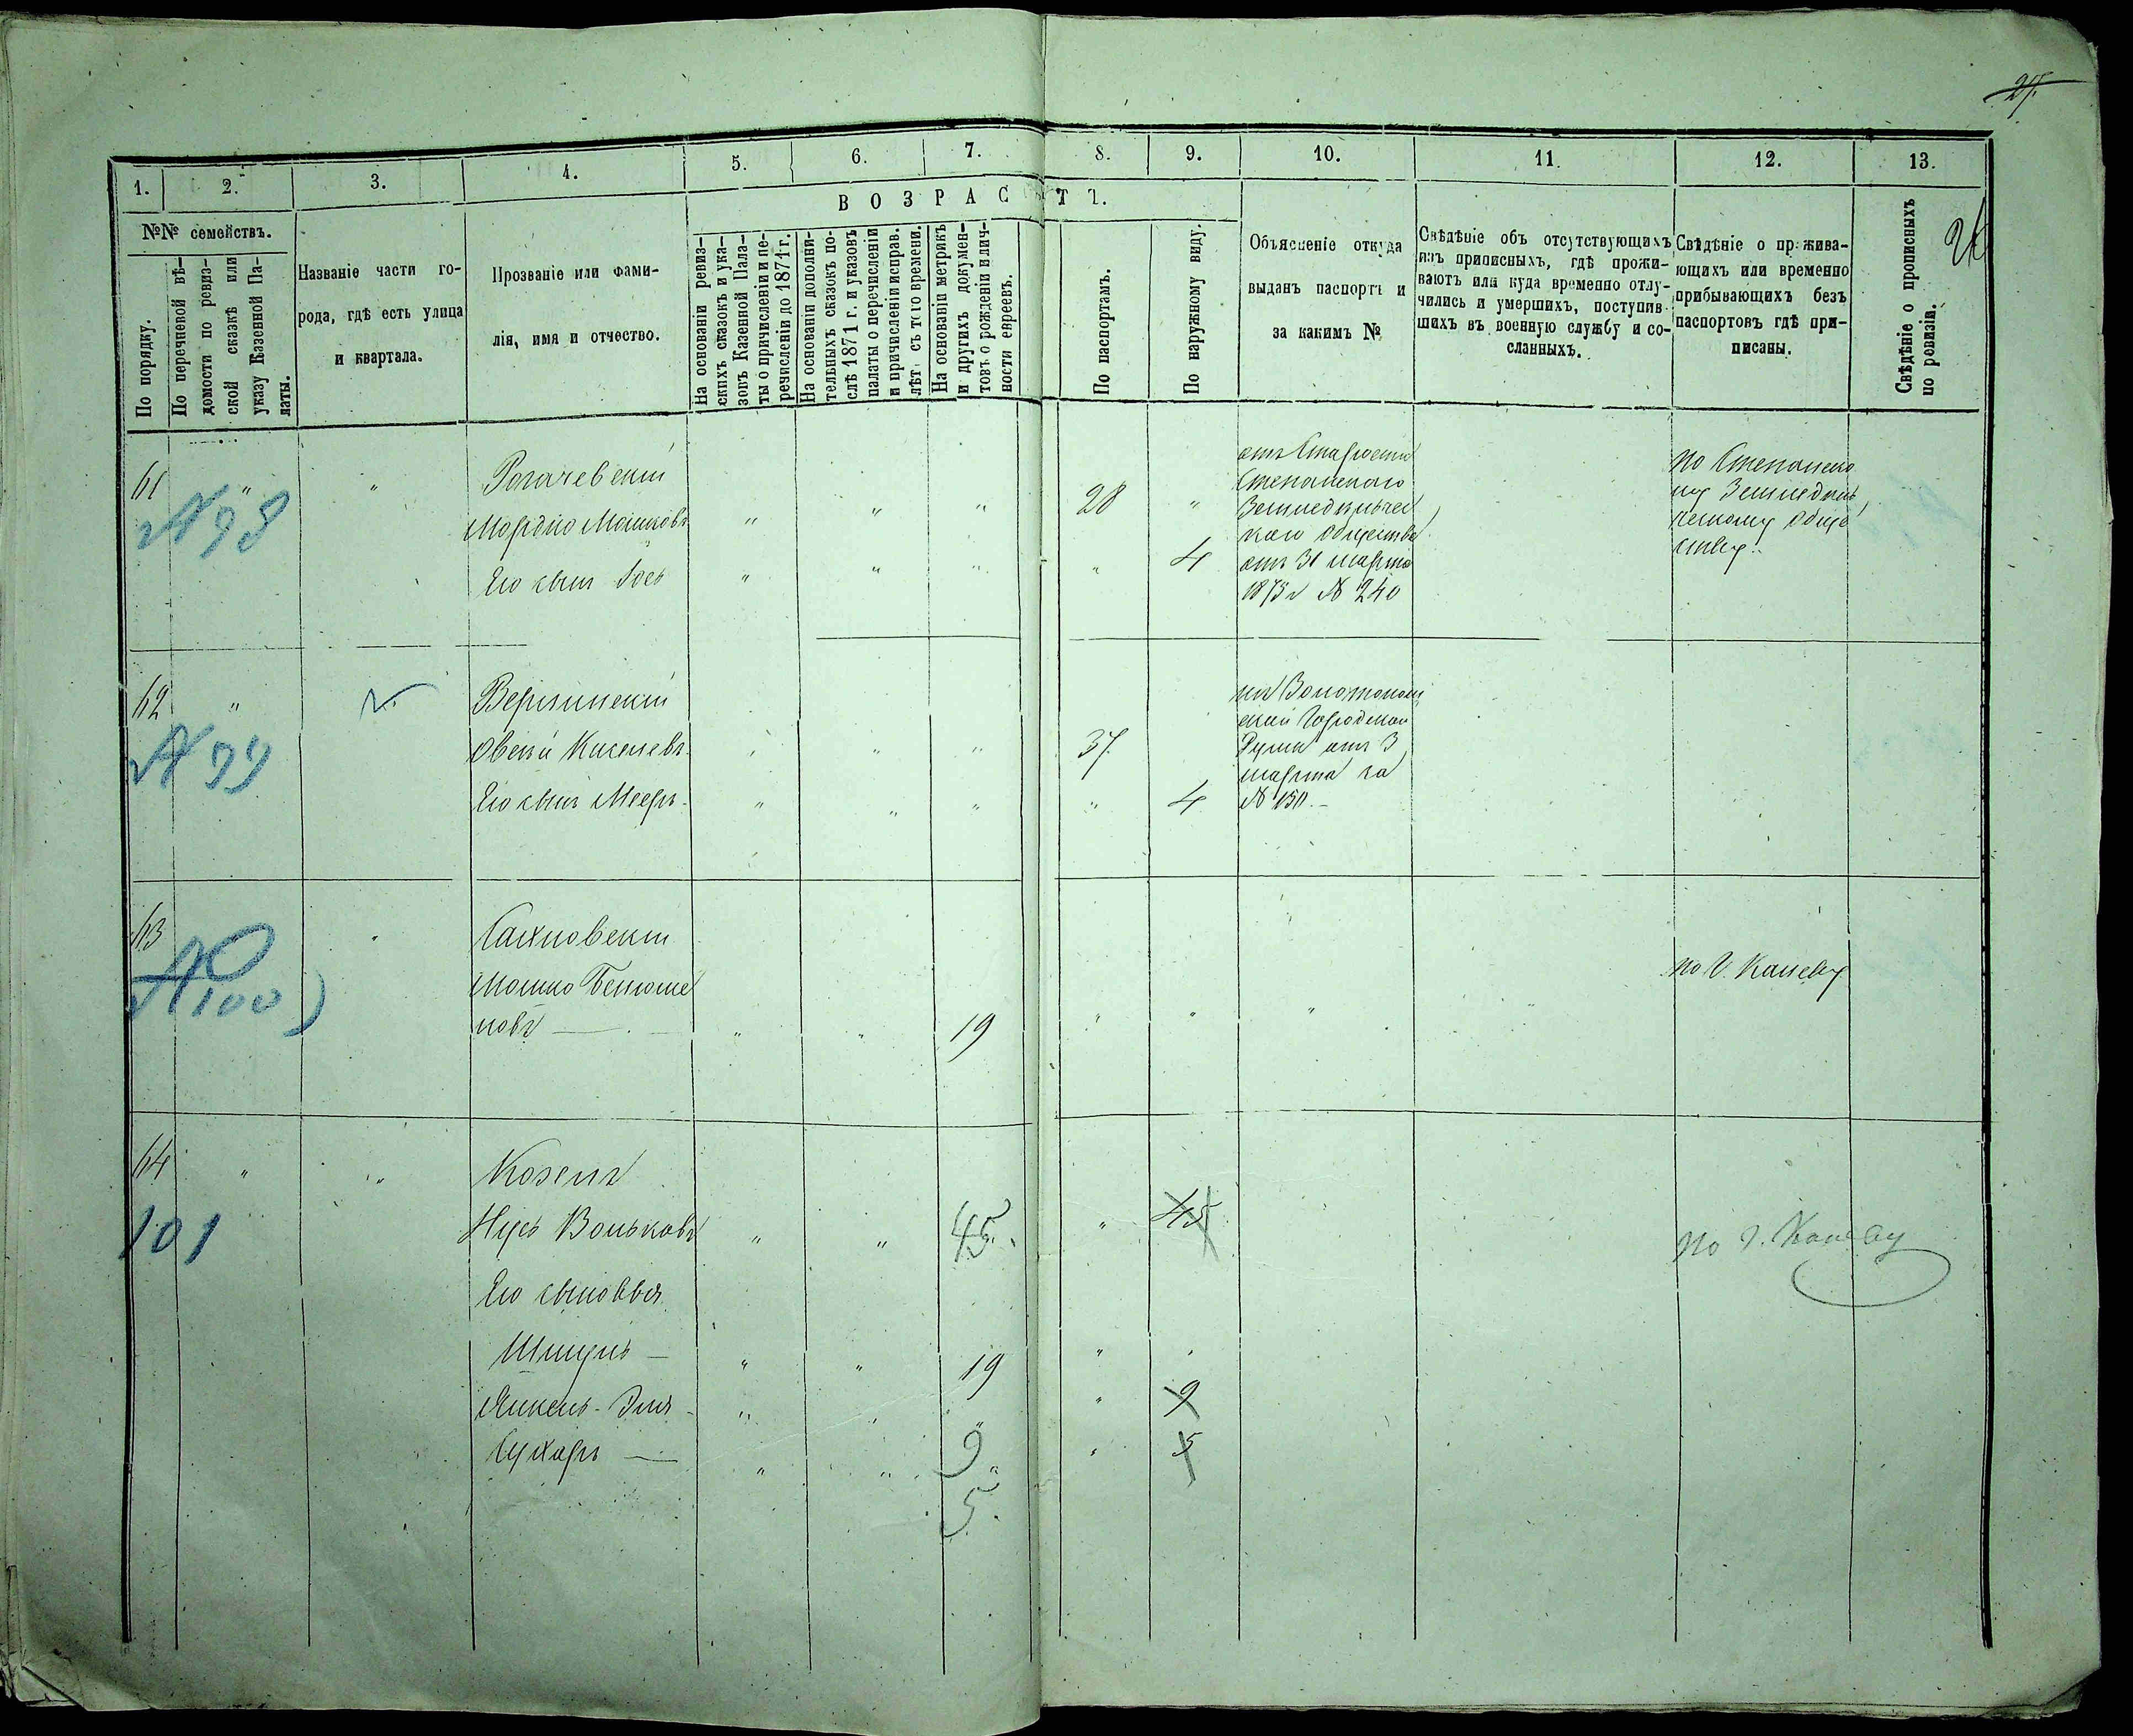 27.
1.
2.
3.
4.
5.
6.
7.
8.
9.
10.
11.
12.
13.
ВОЗРАСТЪ.
№№ семействъ.
По порядку.
По перечневой вѣ-
домости по ревиз-
ской сказкѣ или
указу Казенной Па-
латы.
Названіе части го-
рода, гдѣ есть улица
и квартала.
Прозваніе или фами-
лія, имя и отчество.
На основаніи ревиз-
скихъ сказокъ и ука-
зовъ Казенной Пала-
ты о причисленіи и пе-
речисленіи до 1871 г.
На основаніи дополни-
тельныхъ сказокъ по-
слѣ 1871 г. и указовъ
палаты о перечисленіи
и причисленіи исправ.
лѣтъ съ того времени.
На основаніи метрикъ
и другихъ докумен-
товъ о рожденіи и лич-
ности евреевъ.
По паспортамъ.
По наружному виду.
Объясненіе откуда
выданъ паспортъ и
за какимъ №
Свѣдѣніе объ отсутствующихъ
изъ приписныхъ, гдѣ прожи-
ваютъ или куда временно отлу-
чились и умершихъ, поступив-
шихъ въ военную службу и со-
сланныхъ.
Свѣдѣніе о прожива-
ющихъ или временно
прибывающихъ безъ
паспортовъ гдѣ при-
писаны.
Свѣдѣніе о прописныхъ
по ревизіи.
61 " " Рогачевскій
№ 98
Мордко Мошковъ " " " 28 "
Его сынъ " " " " 4
отъ Старосты
Степанскаго
Земледѣльчес
каго общества
отъ 31 марта
1875 г № 240
по Степанско
му Земледѣль
ческому обще
ству.
62 " Вершинскій
№ 99
Овсей " " " 37
Его сынъ Мееръ " " " " 4
Городской
Думы отъ 3
марта за
№ 150.
63 " Сахновскій
№ 100)
Мошко Бенюме
новъ " " 19 " " " "
по г. Каневу
64 " " Козелъ
101
Нусь Вольковъ " " 45. " 45
по г. Каневу
Его сыновья
Шмуль " " 19 " "
Янкель-Эля " " " " 9
9
Сухаръ " " " " 5
5.